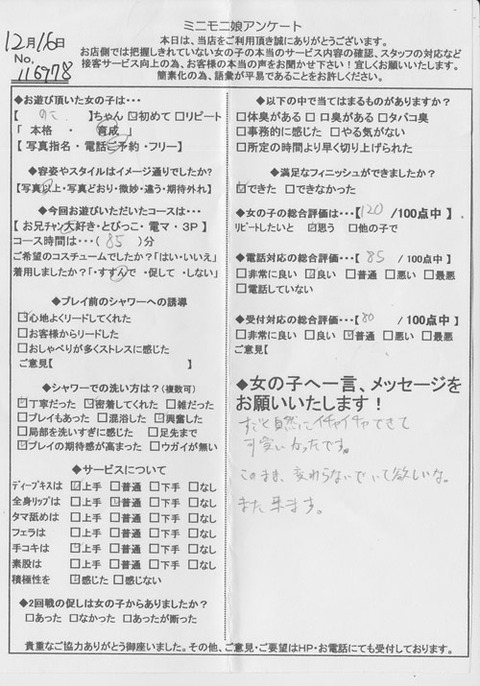 ミニモニ娘アンケート
12月16日
No.
116978
本日は、当店をご利用頂き誠にありがとうございます。
お店側では把握しきれていない女の子の本当のサービス内容の確認、スタッフの対応など
接客サービス向上の為、お客様の本当の声をお聞かせ下さい！宜しくお願いいたします。
簡素化の為、語彙が平易であることをお許しください。
◆お遊び頂いた女の子は・・・
【 】ちゃん ☑初めて □リピート
「 本格 ・ 育成 」
【 写真指名・電話ご予約・フリー】
◆容姿やスタイルはイメージ通りでしたか?
【写真以上・写真どおり・微妙・違う・期待外れ】
◆今回お遊びいただいたコースは・・・
【お兄チャン大好き・とびっこ・電マ・3P】
コース時間は・・・( 85 )分
ご希望のコスチュームでしたか?「はい・いいえ」
着用しましたか?「・すすんで ・促して ・しない」
◆プレイ前のシャワーへの誘導
☑心地よくリードしてくれた
□お客様からリードした
□おしゃべりが多くストレスに感じた
ご意見【 】
◆シャワーでの洗い方は？(複数可)
☑丁寧だった ☑密着してくれた □雑だった
□プレイもあった □混浴した ☑興奮した
□局部を洗いすぎに感じた □足先まで
☑プレイの期待感が高まった □ウガイが無い
◆サービスについて
ディープキスは ☑上手 □普通 □下手 □なし
全身リップは □上手 ☑普通 □下手 □なし
タマ舐めは □上手 □普通 □下手 □なし
フェラは □上手 □普通 □下手 □なし
手コキは ☑上手 □普通 □下手 □なし
素股は □上手 □普通 □下手 □なし
積極性を ☑感じた □感じない
◆2回戦の促しは女の子からありましたか？
□あった □なかった □あったが断った
◆以下の中で当てはまるものがありますか？
□体臭がある □口臭がある □タバコ臭
□事務的に感じた □やる気がない
□所定の時間より早く切り上げられた
◆満足なフィニッシュができましたか？
☑できた □できなかった
◆女の子の総合評価は・・・【 120 /100点中】
リピートしたいと ☑思う □他の子で
◆電話対応の総合評価は・・・【 85 /100点中】
□非常に良い ☑良い □普通 □悪い □最悪
□電話していない
◆受付対応の総合評価は・・・【 80 /100点中】
□非常に良い □良い ☑普通 □悪い □最悪
ご意見【 】
◆女の子へ一言、メッセージを
お願いいたします！
ずっと自然にイチャイチャできて
可愛いかったです。
このまま、変わらないでいて欲しいな。
また来ます。
貴重なご協力ありがとう御座いました。その他、ご意見・ご要望はHP・お電話にても受付しております。